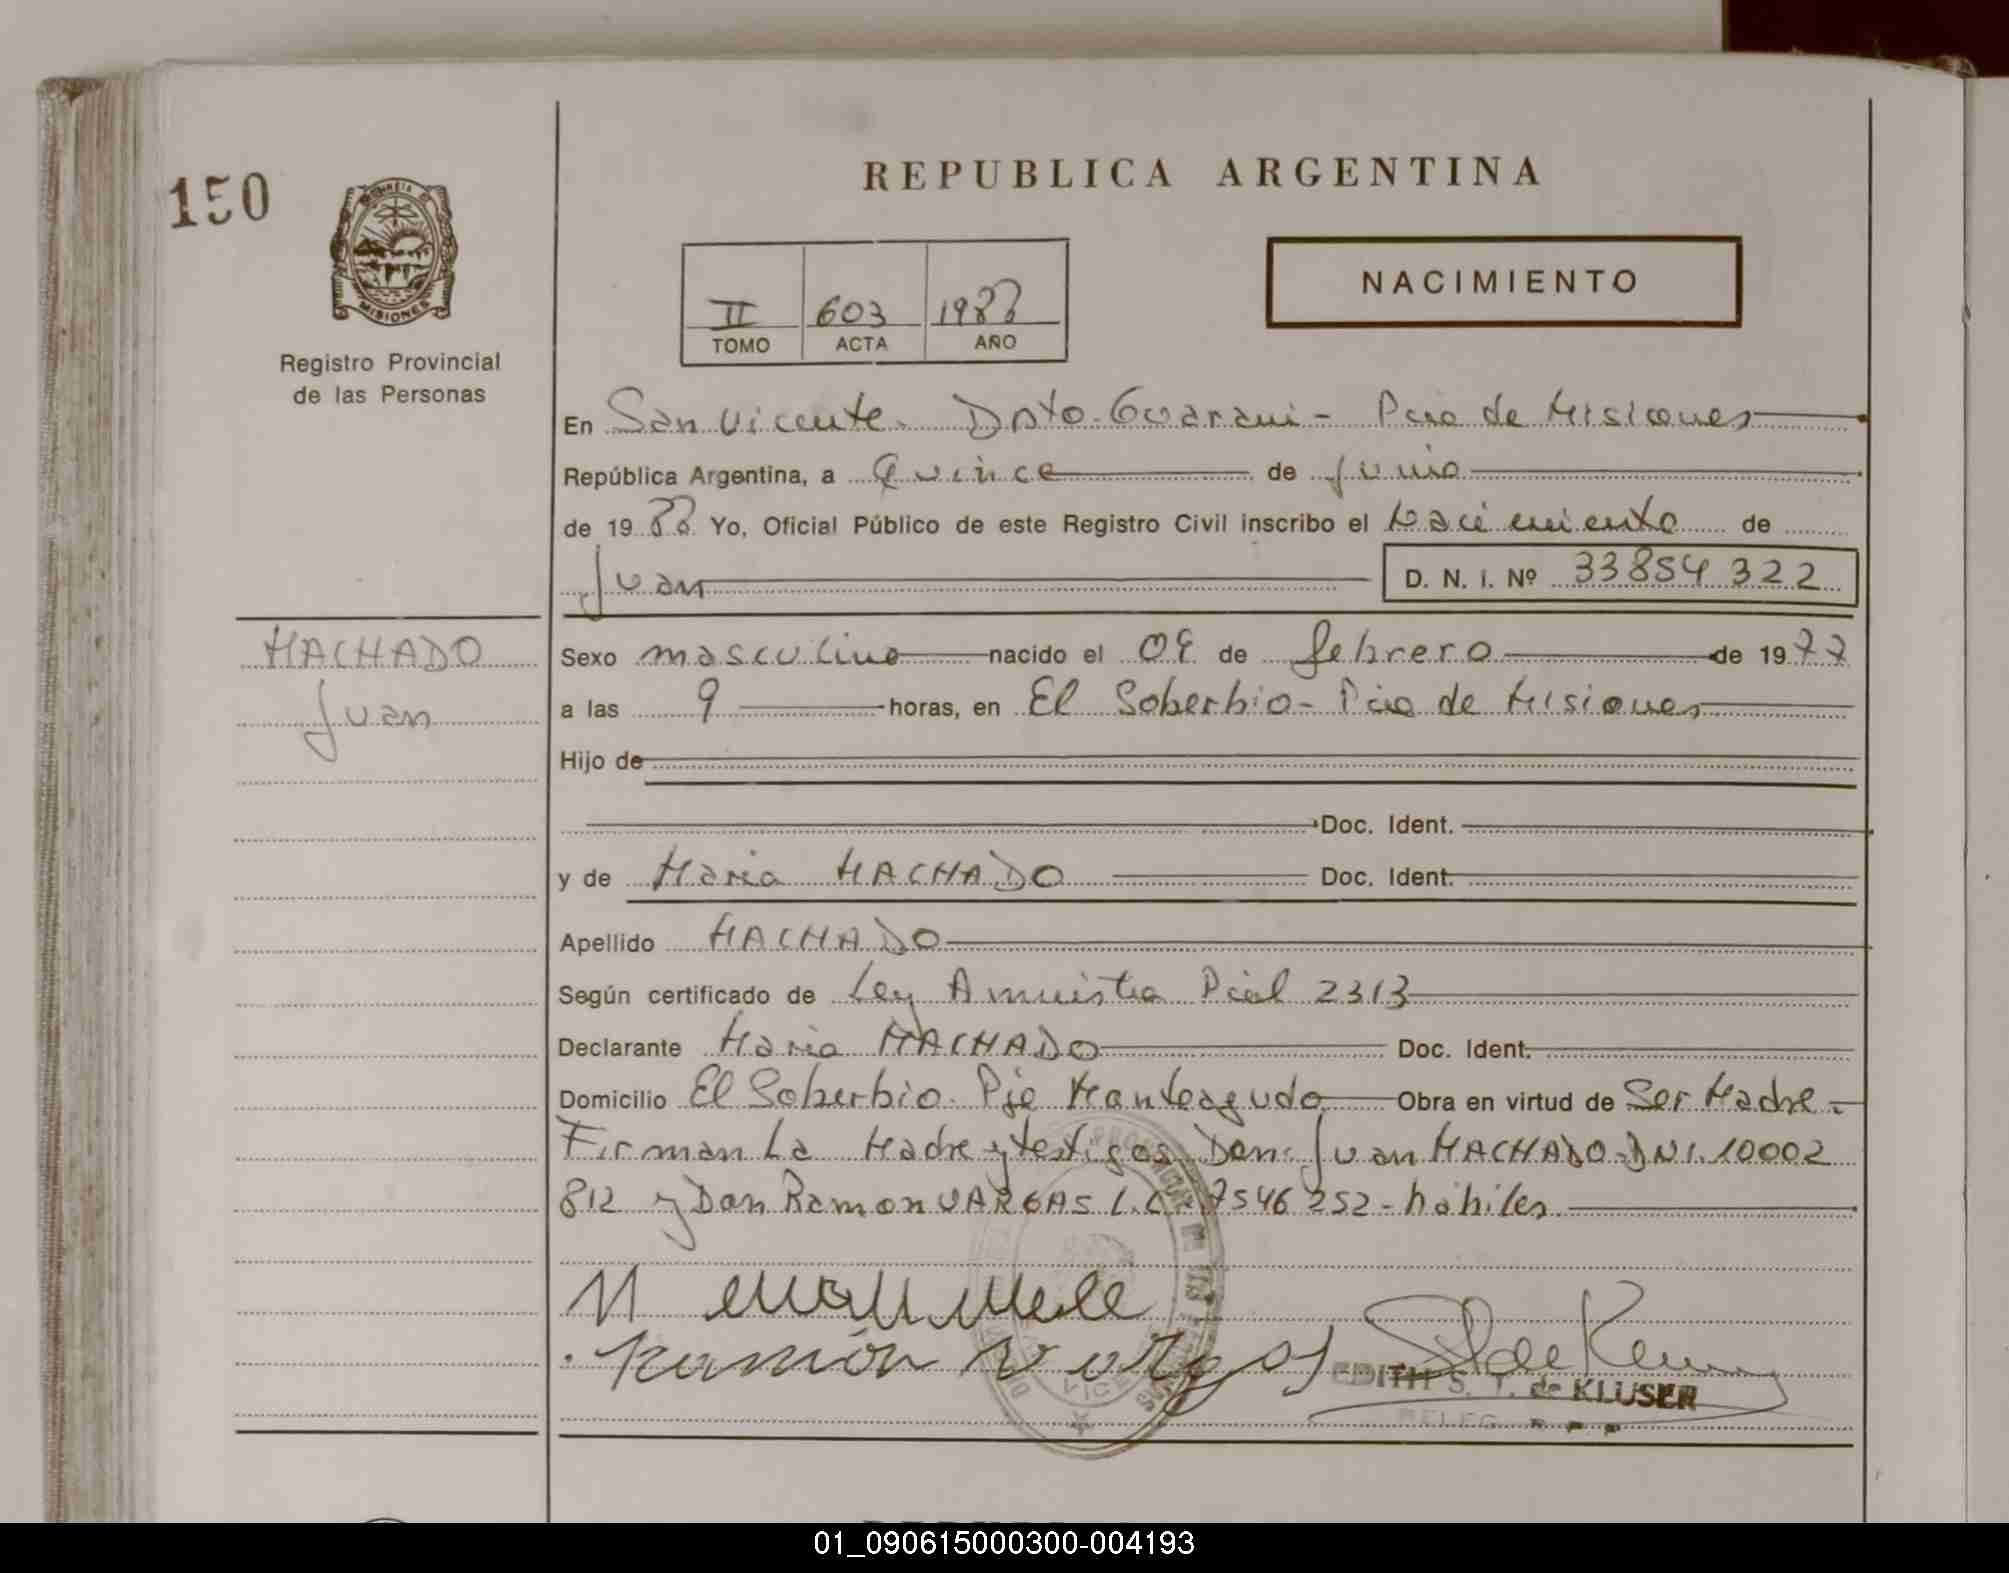 150
REPUBLICA ARGENTINA
CORRIENTES
MISIONES
NACIMIENTO
II 603 1988
TOMO ACTA AÑO
Registro Provincial
de las Personas
En San Vicente. Dpto. Guarani - Pcia de Misiones
República Argentina, a Quince de Junio
de 1988 Yo, Oficial Público de este Registro Civil inscribo el Nacimiento de
Juan D. N. I. Nº 33854322
MACHADO
Juan
Sexo masculino nacido el 09 de febrero de 1977
a las 9 horas, en El Soberbio - Pcia de Misiones
Hijo de
Doc. Ident.
y de Maria MACHADO Doc. Ident.
Apellido MACHADO
Según certificado de Ley Amnistia Pcial 2313
Declarante Maria MACHADO Doc. Ident.
Domicilio El Soberbio. Pje Monteagudo Obra en virtud de Ser Madre -
Firman La Madre y testigos Don: Juan MACHADO - DNI. 10002
812 y Don Ramon VARGAS L.E. 7546252 - hábiles
Ramón Vargas
EDITH S. T. de KLUSER
DELEG. R P P
01_090615000300-004193